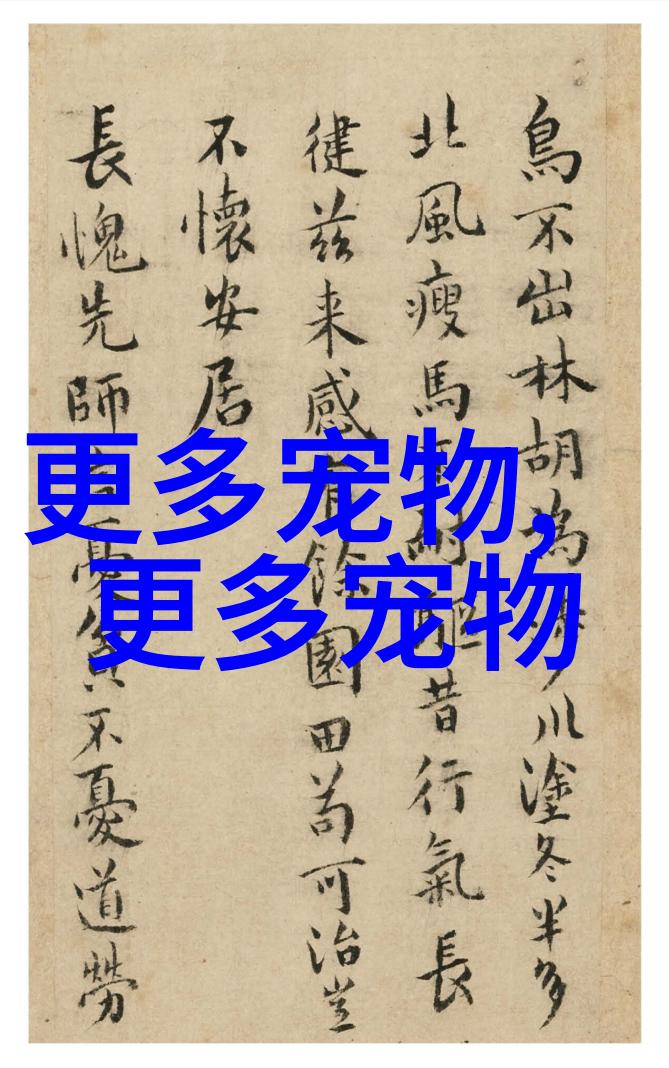 鳥不出林胡為川塗冬半多
北風瘦馬耐驅昔行氣長
徤茲来感有餘園田苟可治豈
不懷安居
長愧先師憂貧不憂道勞
更多宠物，
更多宠物